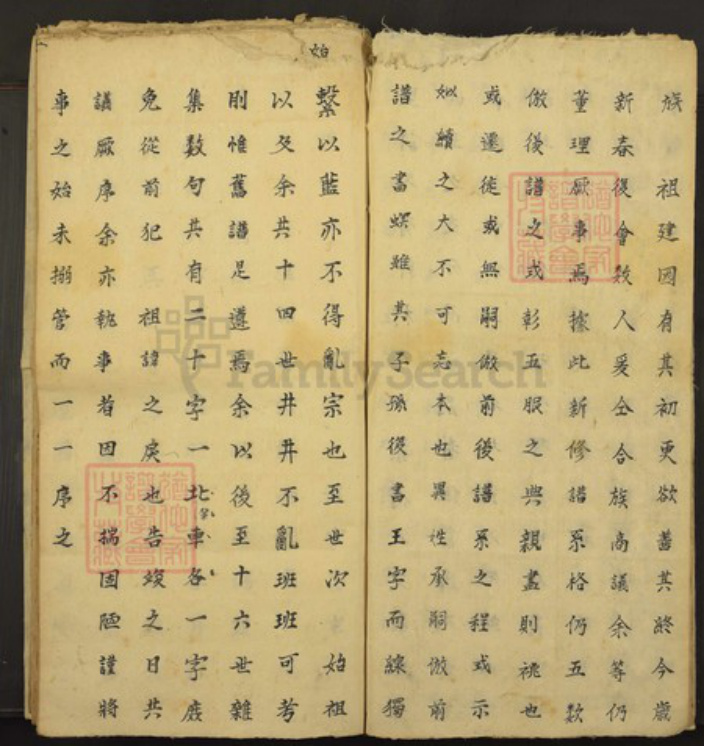 族 祖建因有其初更欲善其終今歲
新春復會数人爰仝合族商議余等仍
董理厥事焉據此新修譜系格仍五数
倣後譜之或彰五服之典親盡則祧也
或遷徙或無嗣倣前後譜系之程或示
似續之大不可忘本也異姓承嗣倣前
譜之書螟雖其子孫後書王字而線獨
始
繫以藍亦不得亂宗也至世次 始祖
以及余共十四世井井不亂班班可考
則惟舊譜足遵焉余以後至十六世雜
集数句共有二十字一北車各一字庶
免從前犯 祖諱之戾也告竣之日共
議厥序余亦執事者因不揣固陋謹將
事之始末搦管而一一序之
FamilySearch